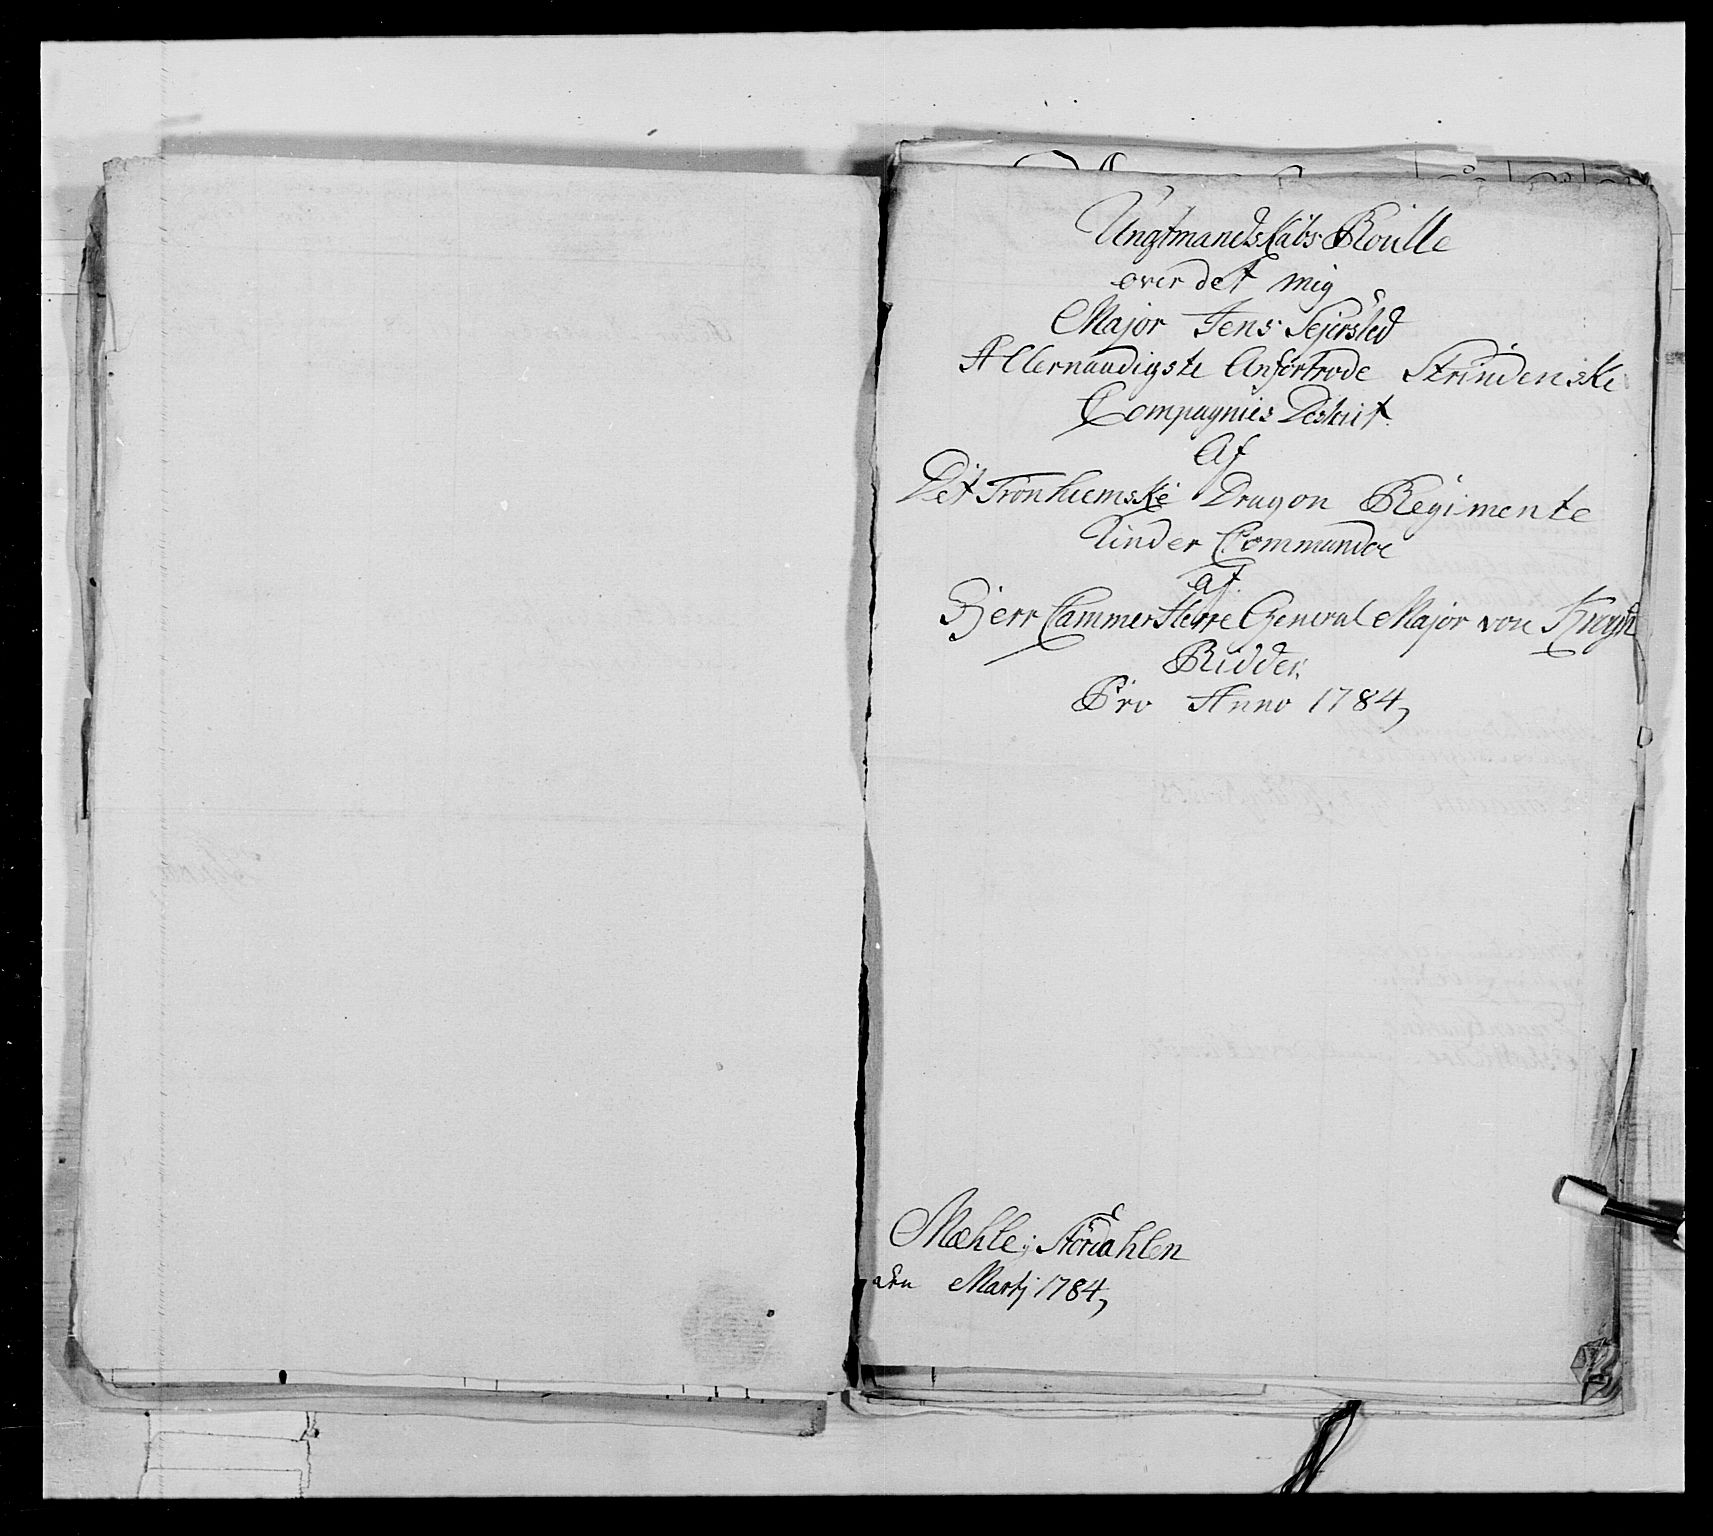 Ungtmandskabs Roulle
over det mig
Major Jens Sejersted
Allernaadigste Anfortrode Strindenske
Compagnies Destrict
Af
Det Tronhiemske Dragon Regimente
Under Commandoe
af
Herr Cammer Herre General Major von Krogh
Ridder,
Pro Anno 1784,
Mæhle i Størdahlen
den Martj 1784,